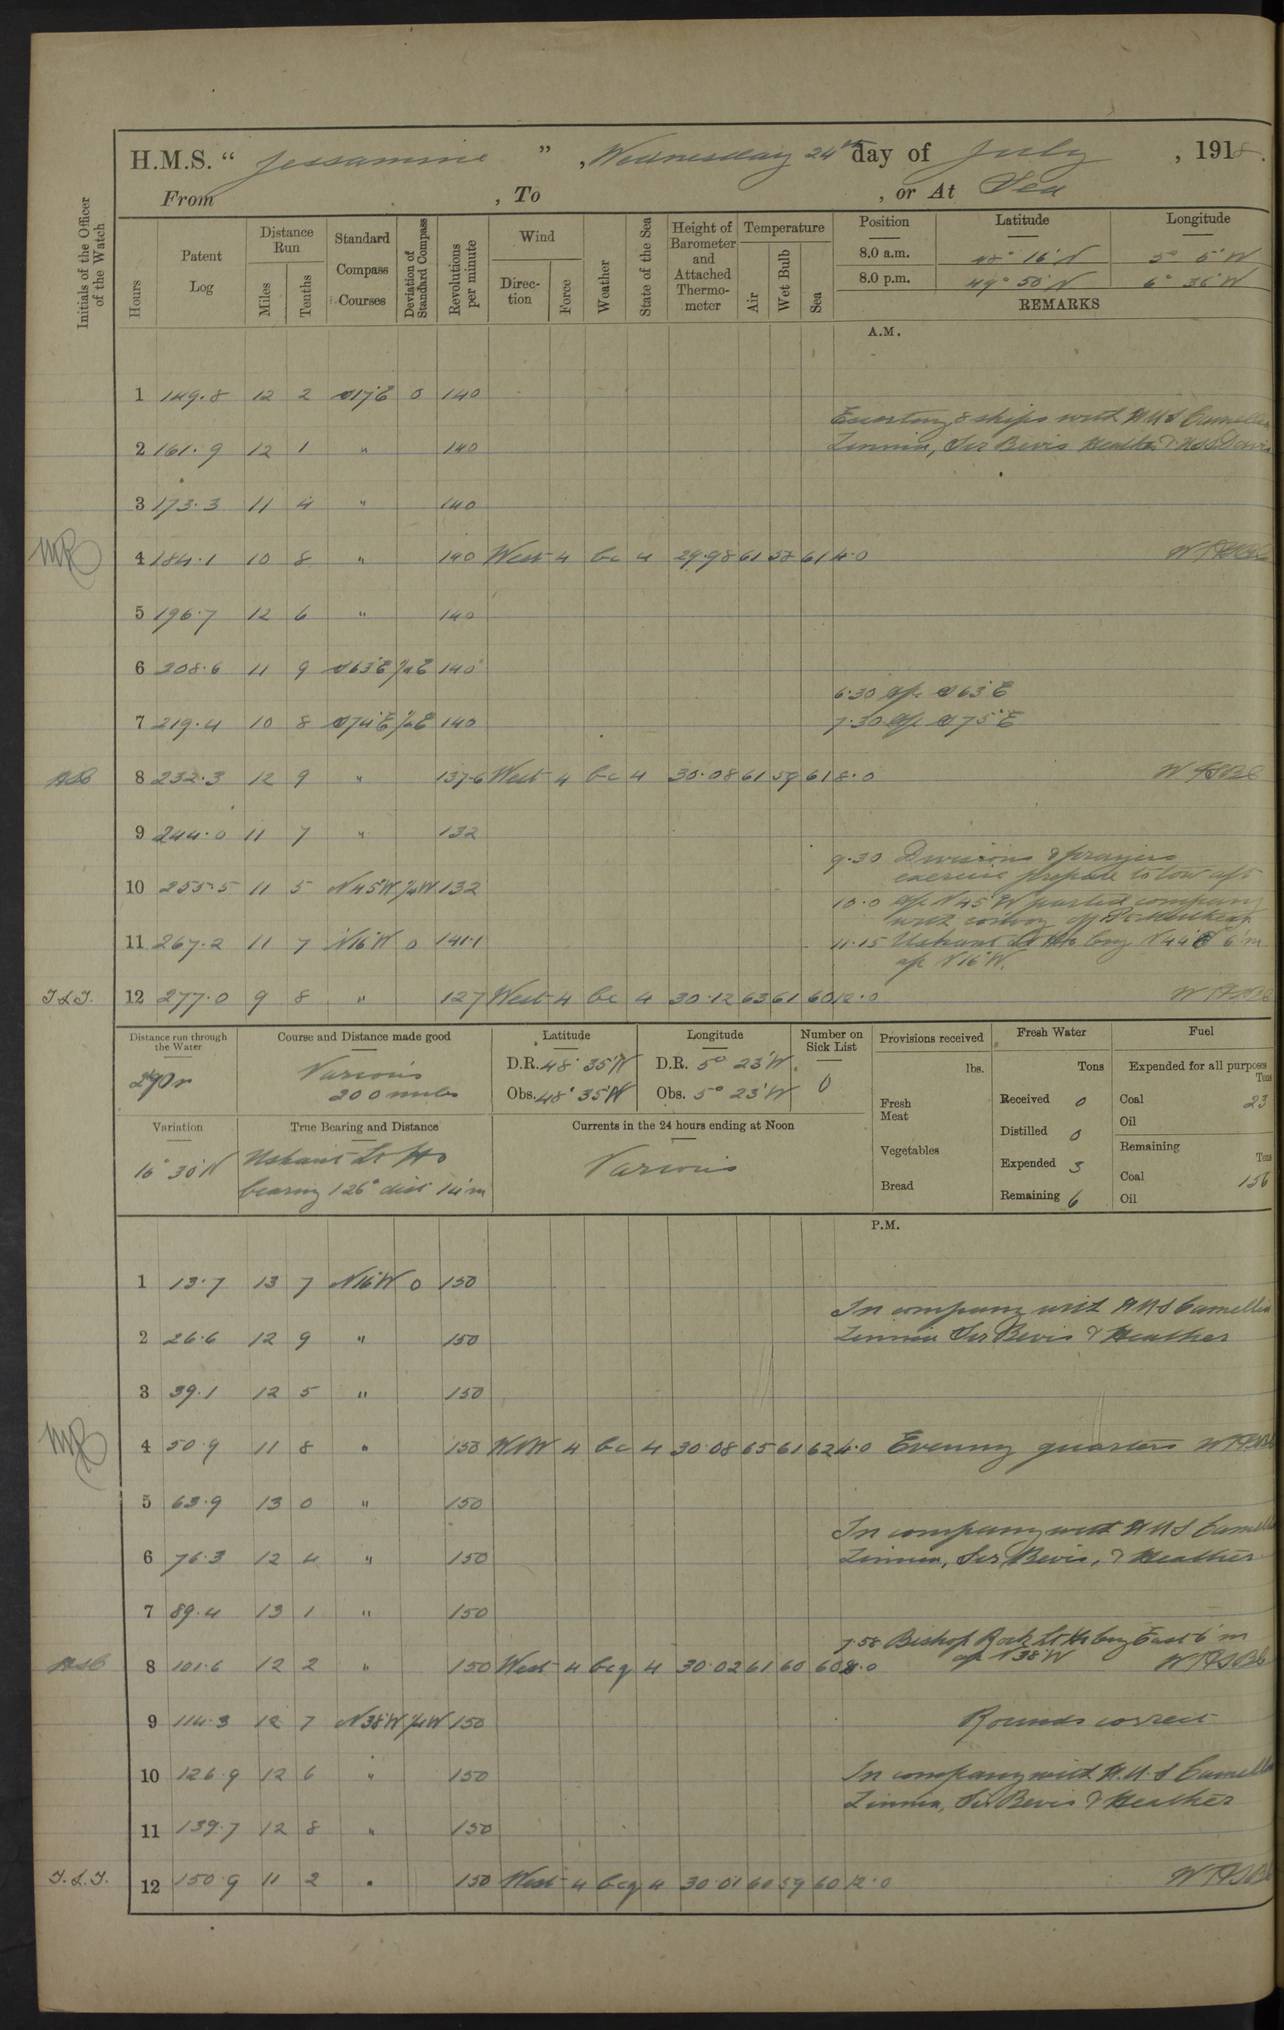 H.M.S. “ Jessamine ”, Wednesday 24th day of July, 1918.
From , To , or At Sea
Initials of the Officer of the Watch
Hours
Patent Log
Distance Run
Miles
Tenths
Standard Compass Courses
Deviation of Standard Compass
Revolutions per minute
Wind
Direction
Force
Weather
State of the Sea
Height of Barometer and Attached Thermometer
Temperature
Air
Wet Bulb
Sea
Position Latitude Longitude
8.0 a.m. 48° 16' N 5° 5' W
8.0 p.m. 49° 50' N 6° 36' W
REMARKS
A.M.
1 149.8 12 2 S17°E 0 140
Escorting 8 ships with H.M.S Camellia
2 161.9 12 1 " 140 Zinnia, Sir Bevis Heather & USS
3 173.3 11 4 " 140
4 184.1 10 8 " 140 West 4 bc 4 29.98 61 58 61 4.0
5 196.7 12 6 " 140
6 208.6 11 9 S63°E 140
6.30 a/c S63°E
7 219.4 10 8 S74°E 140 7.30 a/c S75°E
8 232.3 12 9 " 137.6 West 4 bc 4 30.08 61 59 61 8.0
9 244.0 11 7 " 132
9.30 Divisions & prayers
10 255.5 11 5 N45W 132 exercise prepare to tow aft
10.0 a/c N45°W parted company
with convoy off
11 267.2 11 7 N16°W 0 141.1 11.15 Ushant Lt Ho brg N44°E 6'm
a/c N16°W.
T.L.T. 12 277.0 9 8 " 127 West 4 bc 4 30.12 63 61 60 12.0
Distance run through the Water
Course and Distance made good
Various
200 miles
Latitude
D.R. 48° 35' N
Obs. 48° 35' N
Longitude
D.R. 5° 23' W.
Obs. 5° 23' W
Number on Sick List
0
Provisions received
lbs.
Fresh Meat
Vegetables
Bread
Fresh Water
Tons
Received 0
Distilled 0
Expended 3
Remaining 6
Fuel
Expended for all purposes
Tons
Coal 23
Oil
Remaining
Tons
Coal 156
Oil
Variation
16° 30'
True Bearing and Distance
Ushant Lt Ho
bearing 126° dist 14'm
Currents in the 24 hours ending at Noon
Various
P.M.
1 13.7 13 7 N16°W 0 150
In company with H.M.S Camellia
2 26.6 12 9 " 150 Zinnia Sir Bevis & Heather
3 39.1 12 5 " 150
4 50.9 11 8 " 150 WNW 4 bc 4 30.08 65 61 62 4.0 Evening quarters
5 63.9 13 0 " 150
In company with H.M.S Camellia
6 76.3 12 4 " 150 Zinnia, Sir Bevis, & Heather
7 89.4 13 1 " 150
7.58 Bishop Rock Lt Ho brg East 6'm
a/c N38°W
8 101.6 12 2 " 150 West 4 bcq 4 30.02 61 60 60 8.0
9 114.3 12 7 N38°W 150 Rounds correct
10 126.9 12 6 " 150 In company with H.M.S Camellia
Zinnia, Sir Bevis & Heather
11 139.7 12 8 " 150
T.L.T. 12 150.9 11 2 " 150 West 4 bcq 4 30.01 60 59 60 12.0